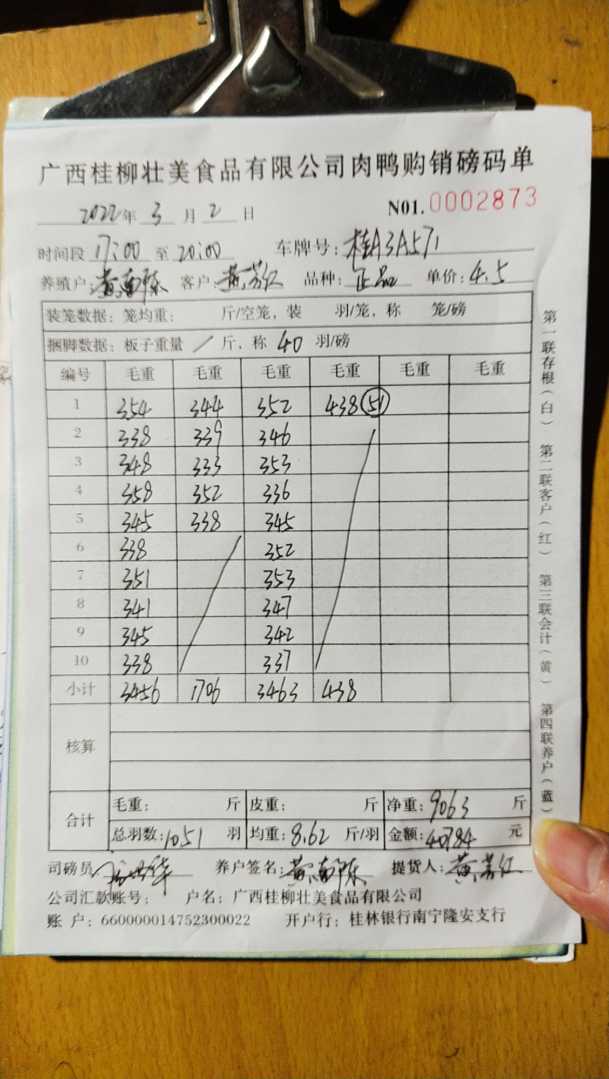 广西桂柳壮美食品有限公司肉鸭购销磅码单
2022年 3 月 2 日 N01. 0002873
时间段 17:00 至 20:00 车牌号: 桂A3A571
养殖户: 黄南 客户: 黄 品种: 正品 单价: 4.5
装笼数据: 笼均重: 斤/空笼, 装 羽/笼, 称 笼/磅
捆脚数据: 板子重量 / 斤, 称 40 羽/磅
编号 毛重 毛重 毛重 毛重 毛重 毛重
1 354 344 352 438 51
2 338 339 346
3 348 333 353
4 358 352 336
5 345 338 345
6 338 352
7 351 353
8 341 347
9 345 342
10 338 337
小计 3456 1706 3463 438
核算
合计
毛重: 斤 皮重: 斤 净重: 9063 斤
总羽数: 1051 羽 均重: 8.62 斤/羽 金额: 40784 元
司磅员 养户签名: 黄南 提货人: 黄
公司汇款账号: 户名: 广西桂柳壮美食品有限公司
账 户: 660000014752300022 开户行: 桂林银行南宁隆安支行
第一联存根(白) 第二联客户(红) 第三联会计(黄) 第四联养户(蓝)